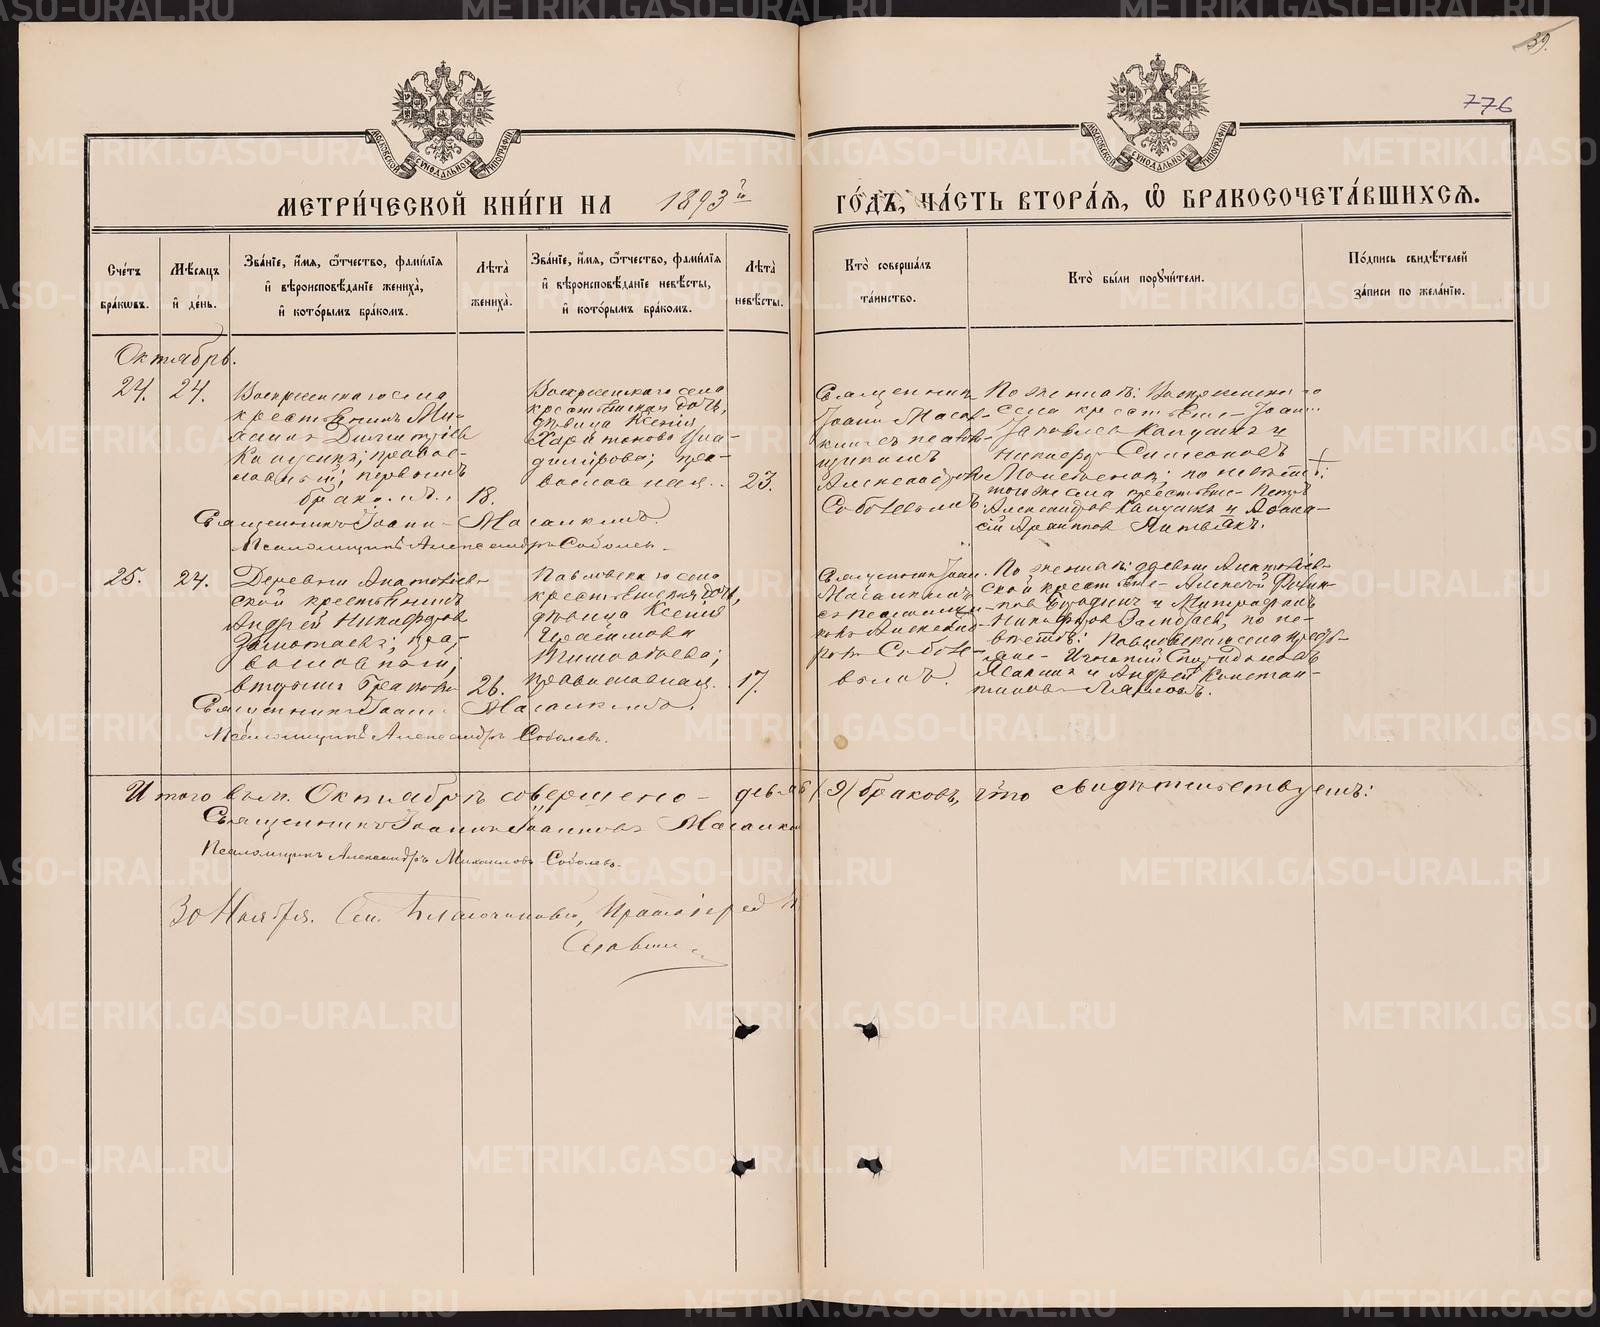 39.
776
МОСКОВСКОЙ СѴНОДАЛЬНОЙ ТИПОГРАФІИ
МОСКОВСКОЙ СѴНОДАЛЬНОЙ ТИПОГРАФІИ
МЕТРИ́ЧЕСКОЙ КНИ́ГИ НА 1893й ГО́ДЪ, ЧА́СТЬ ВТОРА́Я, Ѽ БРАКОСОЧЕТА́ВШИХСЯ.
Сче́тъ бра́кωвъ.
Мѣ́сяцъ и҆ де́нь.
Зва́нїе, и҆́мя, ѻ҆́тчество, фами́лїя и҆ вѣроисповѣ́данїе жениха̀, и҆ кото́рымъ бра́комъ.
Лѣта̀ жениха̀.
Зва́нїе, и҆́мя, ѻ҆́тчество, фами́лїя и҆ вѣроисповѣ́данїе невѣ́сты, и҆ кото́рымъ бра́комъ.
Лѣта̀ невѣ́сты.
Кто̀ соверша́лъ та́инство.
Кто̀ бы́ли порꙋчи́тели.
По́дпись свидѣ́телей за́писи по жела́нїю.
Октябрь.
24. 24.
Воскресенскаго села
крестьянинъ Ми-
Димитріев
Капусинъ; правос-
лавный; первымъ
бракомъ.
18.
Воскресенскаго села
крестьянская дочь,
дѣвица Ксенія
Харитонова Вла-
димірова; пра-
вославная.
23.
Священник
Іоаннъ Масал-
кинъ съ псалом-
щикомъ
Александром
Соболевымъ
По женихѣ: Воскресенскаго
села крестьяне - Іоанн
Яковлевъ Капусинъ и
Никифор Симеоновъ
по невѣстѣ:
того же села крестьяне - Петръ
Александров Капусинъ и Афана-
сій Архиппов Литвакъ.
Священникъ Іоанн Масалкинъ.
Псаломщикъ Александръ Соболевъ.
25. 24.
Деревни Анатоліев-
ской крестьянинъ
Андрей Никифоров
Замотаевъ; пра-
вославный;
вторымъ бракомъ
26.
Павловскаго села
крестьянская дочь,
дѣвица Ксенія
Герасимова
Тимофеева;
православная.
17.
Священникъ Іоанн
Масалкинъ
съ псаломщи-
комъ Алексан-
дромъ Соболе-
вымъ.
По женихѣ: деревни Анатоліев-
ской крестьяне - Алексей Филип-
пов и Митрофанъ
Никифоров Замотаев; по не-
вѣстѣ: Павловскаго села кресть-
яне - Игнатій Спиридоновъ
и Андрей Констан-
тинов
Священникъ Іоанн Масалкинъ.
Псаломщикъ Александръ Соболевъ.
Итого въ м. Октябрѣ совершено - девять (9) браковъ, что свидѣтельствуемъ:
Священникъ Іоаннъ Іоанновъ Масалкин
Псаломщикъ Александръ Михаиловъ Соболевъ.
30 Ноября. См. Благочинный, Протоіерей